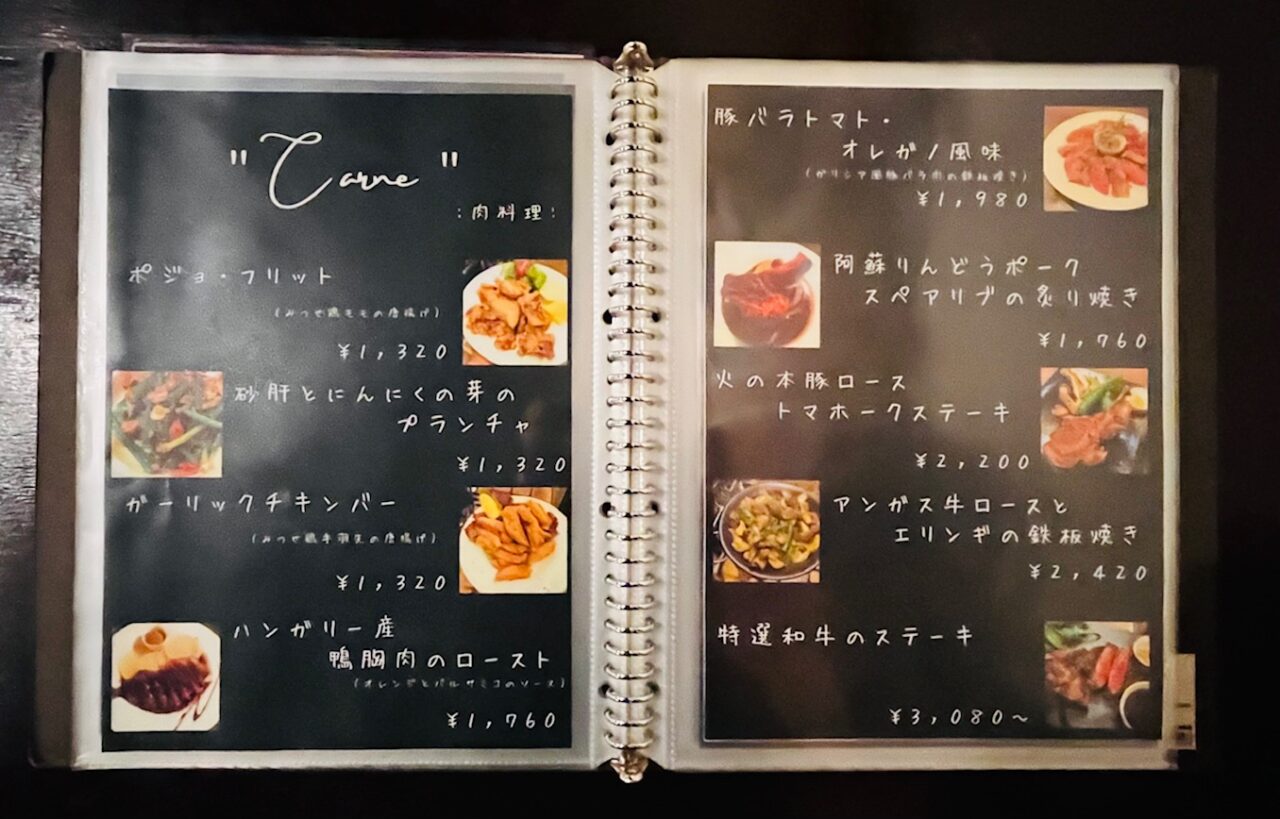 "Carne"
:肉料理:
ポジョ・フリット
(みつせ鶏モモの唐揚げ)
¥1,320
砂肝とにんにくの芽の
プランチャ
¥1,320
ガーリックチキンバー
(みつせ鶏手羽先の唐揚げ)
¥1,320
ハンガリー産
鴨胸肉のロースト
(オレンジとバルサミコのソース)
¥1,760
豚バラトマト・
オレガノ風味
(ガリシア風豚バラ肉の鉄板焼き)
¥1,980
阿蘇りんどうポーク
スペアリブの炙り焼き
¥1,760
火の本豚ロース
トマホークステーキ
¥2,200
アンガス牛ロースと
エリンギの鉄板焼き
¥2,420
特選和牛のステーキ
¥3,080~